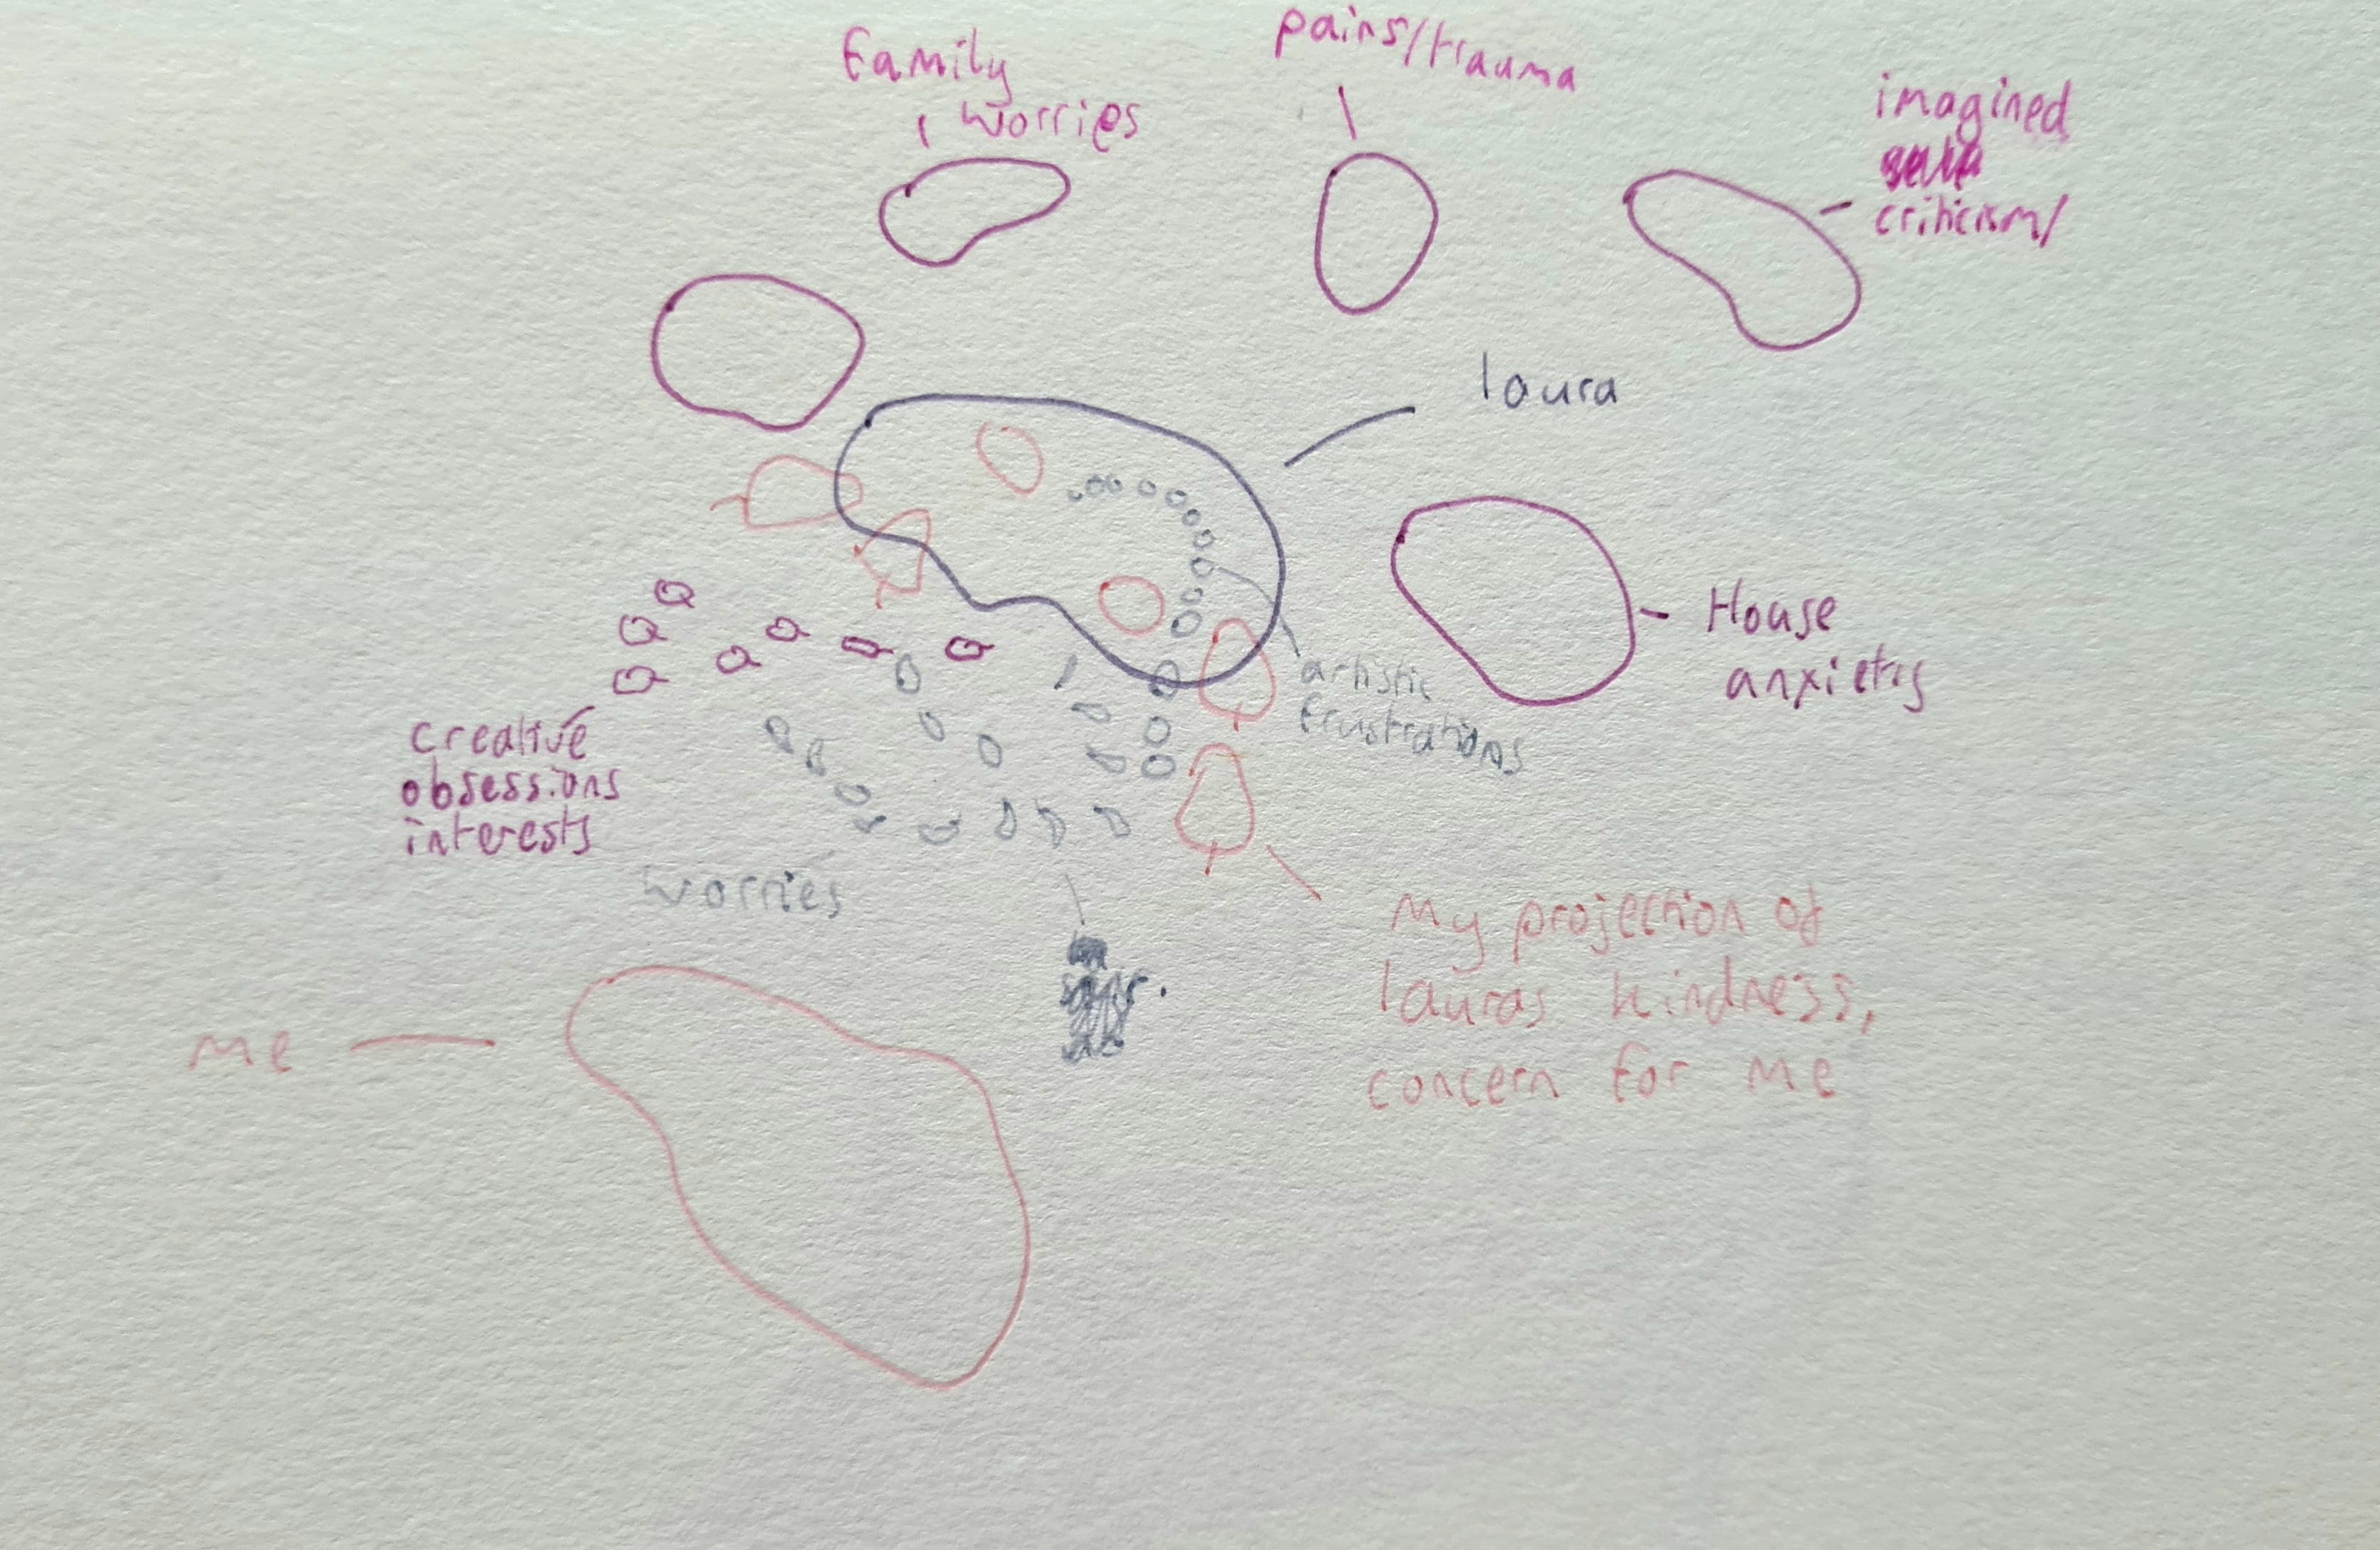 family
worries
pains/trauma
imagined
criticism/
laura
House
anxietys
artistic
frustrations
creative
obsessions
interests
worries
me
my projection of
lauras kindness,
concern for me